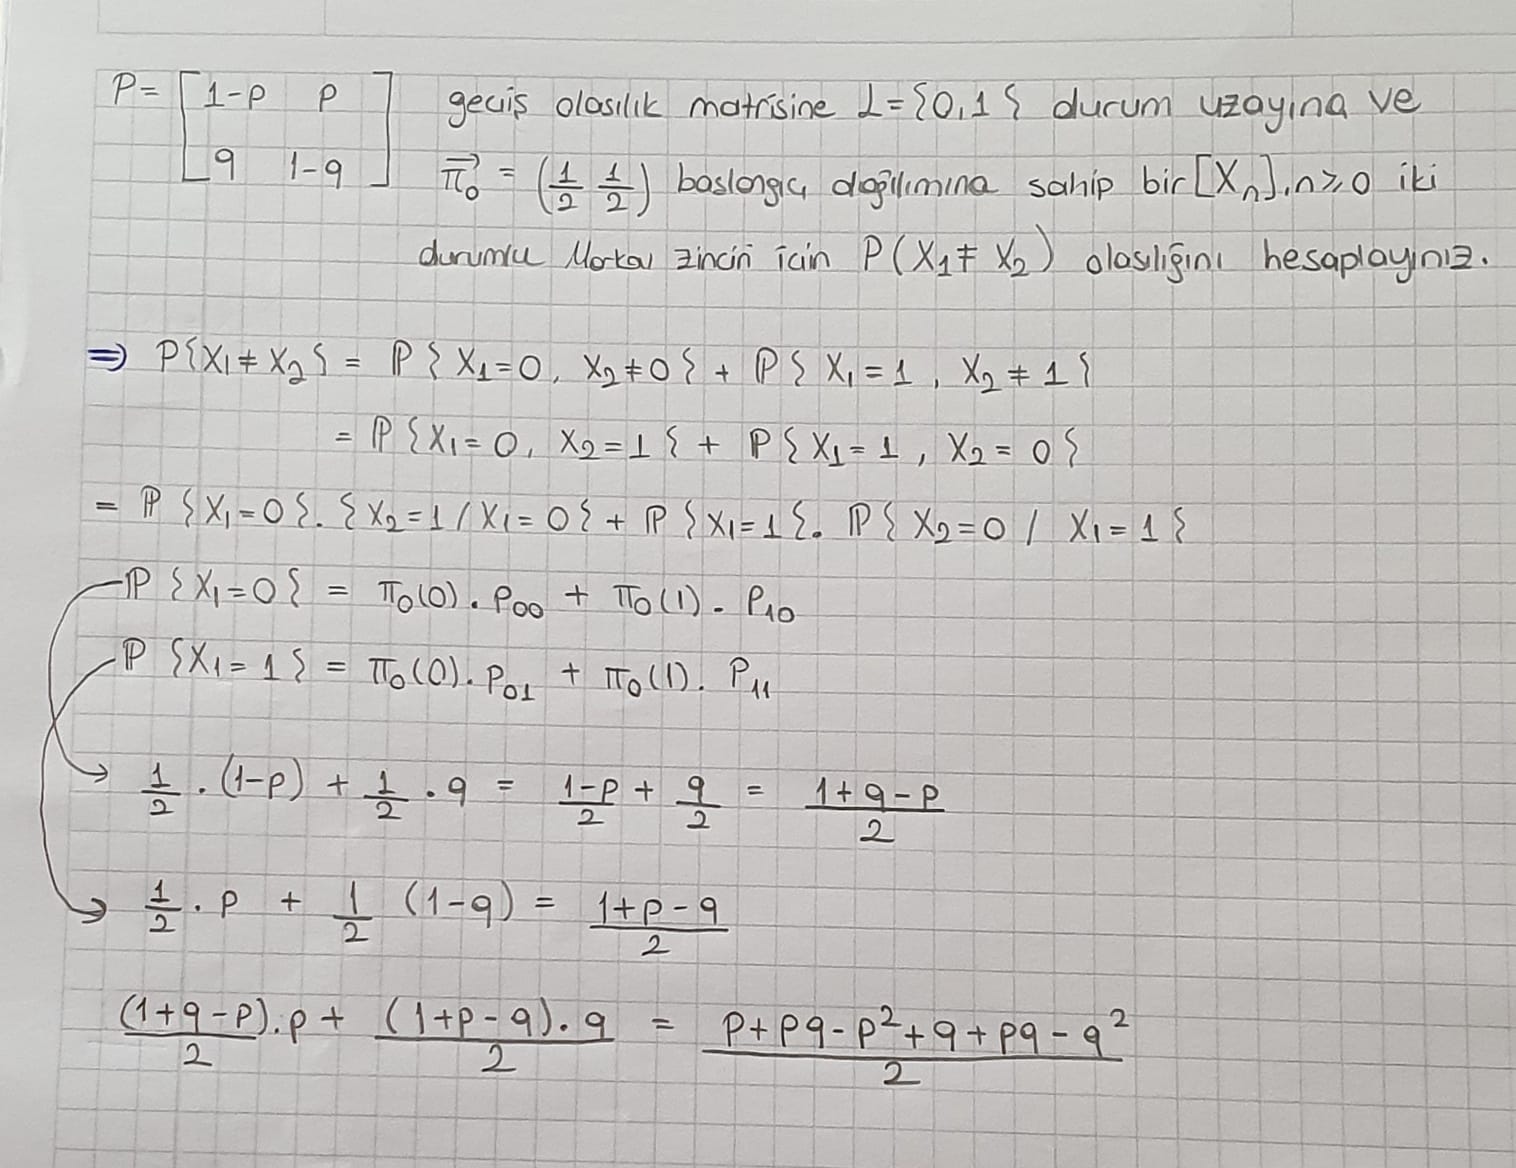 P = [1-p p geçiş olasılık matrisine L={0,1} durum uzayına ve
q 1-q] π₀⃗ = (1/2 1/2) başlangıç dağılımına sahip bir [Xₙ], n≥0 iki
durumlu Markov zinciri için P(X₁≠X₂) olasılığını hesaplayınız.
⇒ P{X₁≠X₂} = ℙ{X₁=0, X₂≠0} + ℙ{X₁=1, X₂≠1}
= ℙ{X₁=0, X₂=1} + ℙ{X₁=1, X₂=0}
= ℙ{X₁=0}.{X₂=1/X₁=0} + ℙ{X₁=1}.ℙ{X₂=0/X₁=1}
ℙ{X₁=0} = π₀(0).P₀₀ + π₀(1).P₁₀
ℙ{X₁=1} = π₀(0).P₀₁ + π₀(1).P₁₁
→ 1/2.(1-p) + 1/2.q = (1-p)/2 + q/2 = (1+q-p)/2
→ 1/2.p + 1/2(1-q) = (1+p-q)/2
(1+q-p)/2.p + (1+p-q).q/2 = (p+pq-p²+q+pq-q²)/2